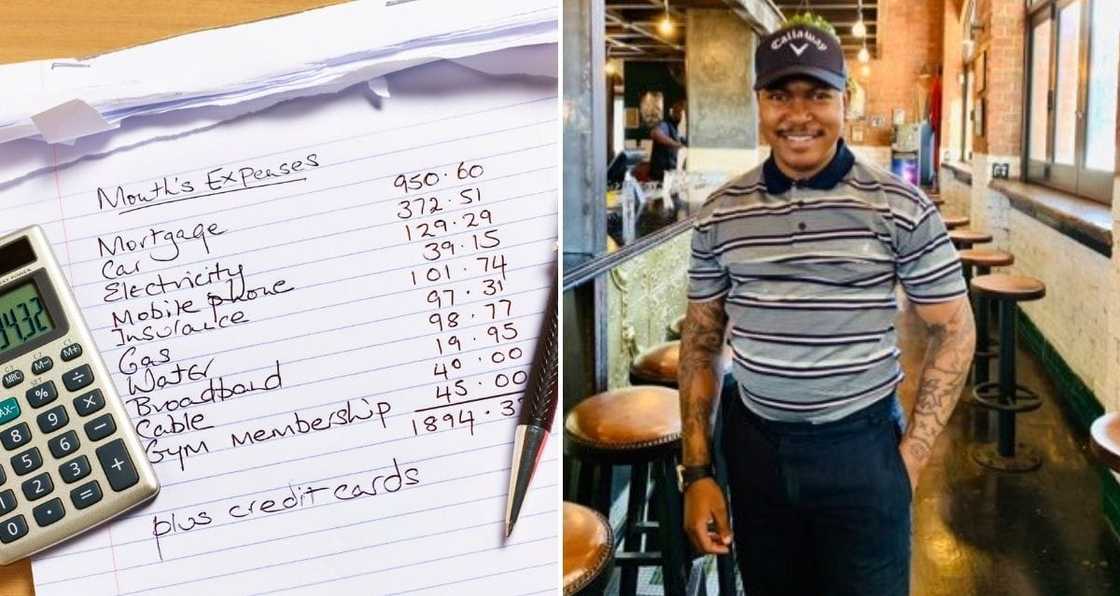 Month's Expenses
Mortgage 950.60
Car 372.51
Electricity 129.29
Mobile phone 39.15
Insurance 101.74
Gas 97.31
Water 98.77
Broadband 19.95
Cable 40.00
Gym Membership 45.00
1894.3
plus credit cards
94.32
MRC M- M+
% ÷
TAX-
9 × −
8 6
5 3 +
2 =
1
0 .
Callaway